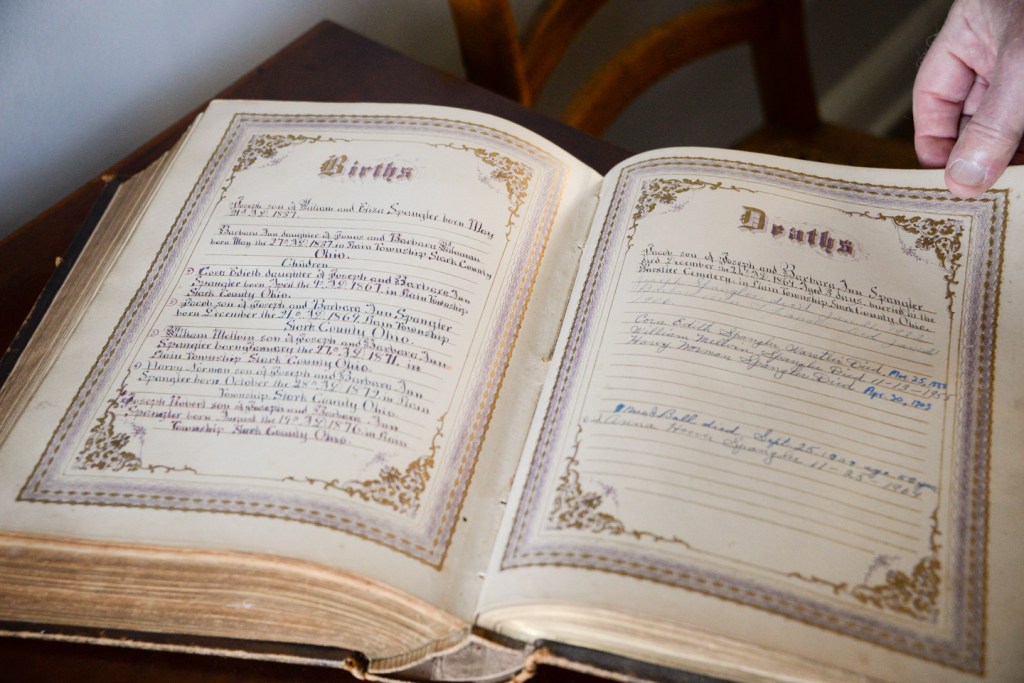 Births
Joseph son of William and Eliza Spangler born May
A.D. 1837.
Barbara Ann daughter of Jonas and Barbara
born May the 27th A.D. 1837. in Plain Township Stark County
Ohio.
Children
Cora Edieth daughter of Joseph and Barbara Ann
Spangler born April the A.D. 1867. in Plain Township
Stark County Ohio.
Jacob son of Joseph and Barbara Ann Spangler
born December the 21st A.D. 1869. Plain Township
Stark County Ohio.
William Mellvin son of Joseph and Barbara Ann
Spangler born January the 27th A.D. 1871. in
Plain Township Stark County Ohio.
Harry Norman son of Joseph and Barbara Ann
Spangler born October the 28th A.D. 1872 in Plain
Township Stark County Ohio.
Joseph Robert son of Joseph and Barbara Ann
Spangler born August the 19th A.D. 1876. in Plain
Township Stark County Ohio.
Deaths
Jacob son of Joseph and Barbara Ann Spangler
died December the 24th A.D. 1869. Aged 3 days, buried in the
Cemetery, in Plain Township, Stark County, Ohio.
Joseph Spangler
Cora Edith Spangler Died Mar. 25, 1938
William Melvin Spangler Died 11-13-1955
Harry Norman Spangler Died Apr. 30, 1903
Ball died Sept. 25 1929 age 52 yrs
Anna Hoover Spangler 11-25-1964